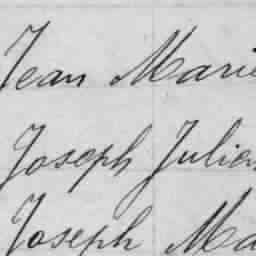 Jean Marie
Joseph Julien
Joseph Ma